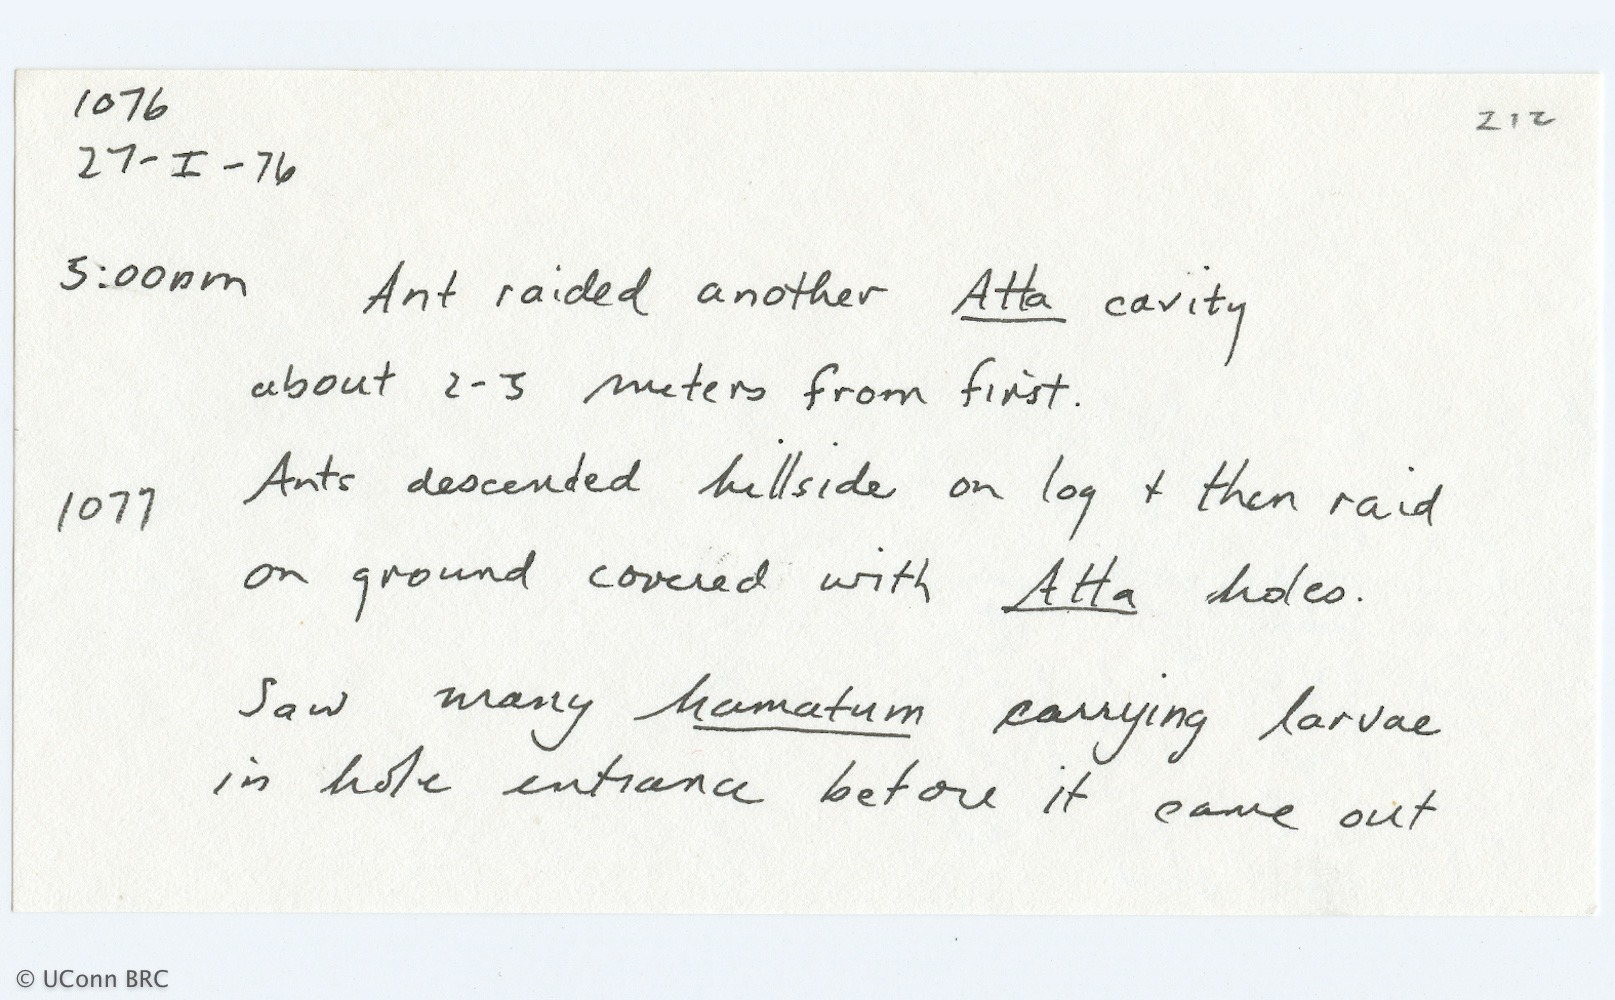 1076
212
27-I-76
3:00pm Ant raided another Atta cavity
about 2-3 meters from first.
1077 Ants descended hillside on log + then raid
on ground covered with Atta holes.
Saw many hamatum carrying larvae
in hole entrance before it came out
© UConn BRC